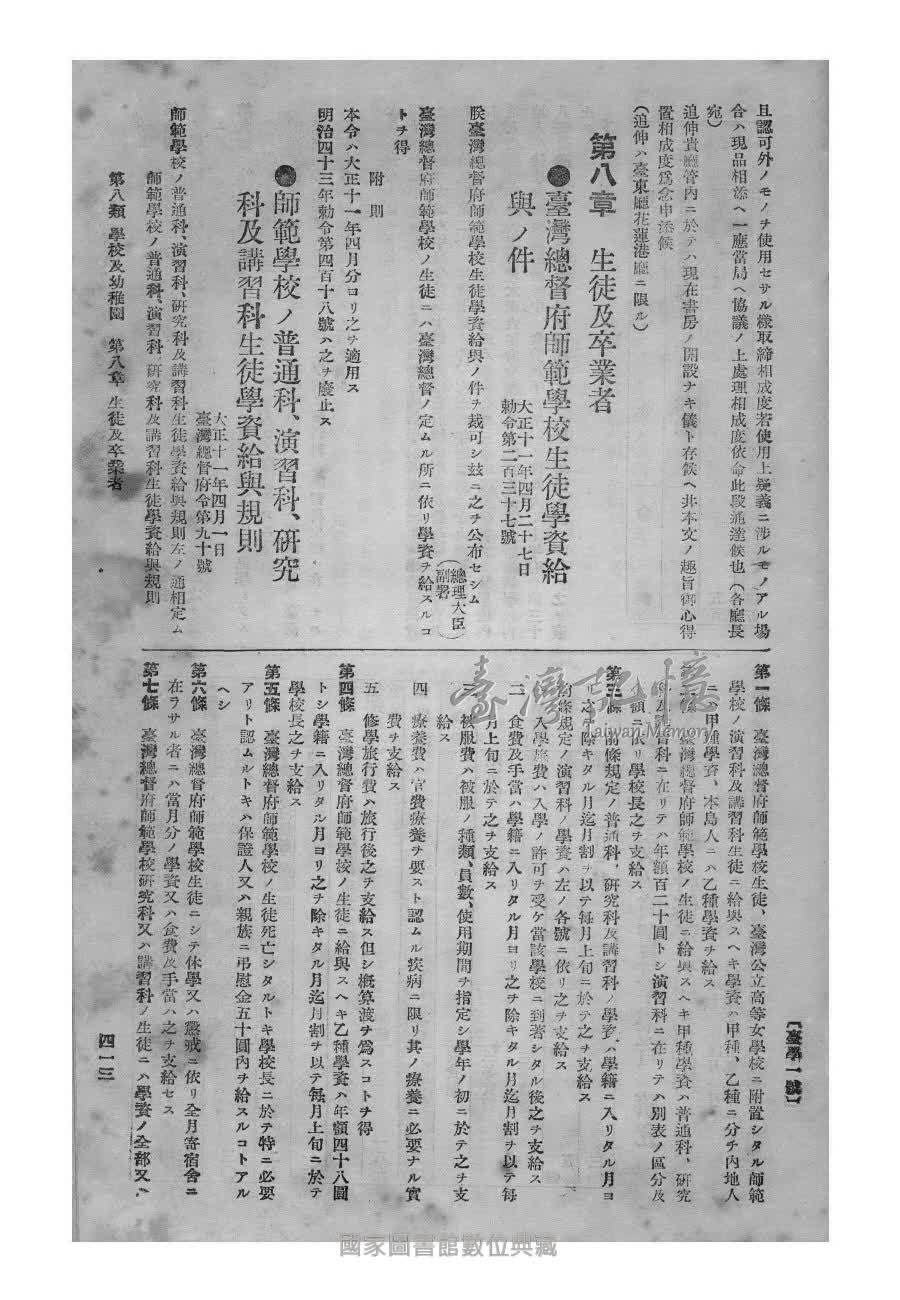 且認可外ノモノヲ使用セサル樣取締相成度若使用上疑義ニ涉ルモノアル場
合ハ現品相添ヘ一應當局ヘ協議ノ上處理相成度依命此段通達候也(各廳長
宛)
追伸貴廳管內ニ於テハ現在書房ノ開設ナキ儀ト存候ヘ共本文ノ趣旨御心得
置相成度爲念申添候
(追伸ハ臺東廳花蓮港廳ニ限ル)
第八章 生徒及卒業者
●臺灣總督府師範學校生徒學資給
與ノ件
大正十一年四月二十七日
勅令第二百三十七號
朕臺灣總督府師範學校生徒學資給與ノ件ヲ裁可シ玆ニ之ヲ公布セシム
(總理大臣
副署)
臺灣總督府師範學校ノ生徒ニハ臺灣總督ノ定ムル所ニ依リ學資ヲ給スルコ
トヲ得
附則
本令ハ大正十一年四月分ヨリ之ヲ適用ス
明治四十三年勅令第四百十八號ハ之ヲ廢止ス
●師範學校ノ普通科、演習科、硏究
科及講習科生徒學資給與規則
大正十一年四月一日
臺灣總督府令第九十號
師範學校ノ普通科、演習科、硏究科及講習科生徒學資給與規則左ノ通相定ム
師範學校ノ普通科、演習科、硏究科及講習科生徒學資給與規則
第八類 學校及幼稚園 第八章 生徒及卒業者
第一條 臺灣總督府師範學校生徒、臺灣公立高等女學校ニ附置シタル師範
學校ノ演習科及講習科生徒ニ給與スヘキ學資ハ甲種、乙種ニ分チ內地人
ニハ甲種學資、本島人ニハ乙種學資ヲ給ス
臺灣總督府師範學校ノ生徒ニ給與スヘキ甲種學資ハ普通科、硏究
科ニ在リテハ年額百二十圓トシ演習科ニ在リテハ別表ノ區分及
額ニ依リ學校長之ヲ支給ス
第三條 前條規定ノ普通科、硏究科及講習科ノ學資ハ學籍ニ入リタル月ヨ
リ之ヲ除キタル月迄月割ヲ以テ每月上旬ニ於テ之ヲ支給ス
前條規定ノ演習科ノ學資ハ左ノ各號ニ依リ之ヲ支給ス
入學旅費ハ入學ノ許可ヲ受ケ當該學校ニ到著シタル後之ヲ支給ス
二 食費及手當ハ學籍ニ入リタル月ヨリ之ヲ除キタル月迄月割ヲ以テ每
月上旬ニ於テ之ヲ支給ス
三 被服費ハ被服ノ種類、員數、使用期間ヲ指定シ學年ノ初ニ於テ之ヲ支
給ス
四 療養費ハ官費療養ヲ要スト認ムル疾病ニ限リ其ノ療養ニ必要ナル實
費ヲ支給ス
五 修學旅行費ハ旅行後之ヲ支給ス但シ槪算渡ヲ爲スコトヲ得
第四條 臺灣總督府師範學校ノ生徒ニ給與スヘキ乙種學資ハ年額四十八圓
トシ學籍ニ入リタル月ヨリ之ヲ除キタル月迄月割ヲ以テ每月上旬ニ於テ
學校長之ヲ支給ス
第五條 臺灣總督府師範學校ノ生徒死亡シタルトキ學校長ニ於テ特ニ必要
アリト認ムルトキハ保證人又ハ親族ニ弔慰金五十圓內ヲ給スルコトアル
ヘシ
第六條 臺灣總督府師範學校生徒ニシテ休學又ハ懲戒ニ依リ全月寄宿舍ニ
在ラサル者ニハ當月分ノ學資又ハ食費及手當ハ之ヲ支給セス
第七條 臺灣總督府師範學校硏究科又ハ講習科ノ生徒ニハ學資ノ全部又ハ
〔臺學一號〕
四一三
臺灣記憶
Taiwan Memory
國家圖書館數位典藏